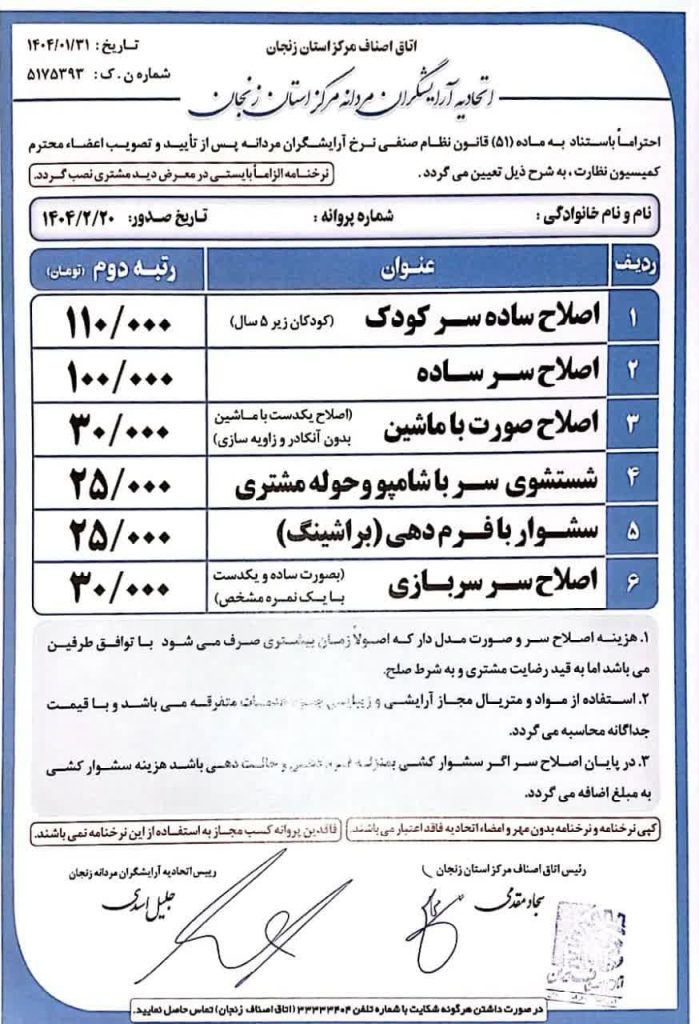 اتاق اصناف مرکز استان زنجان
تاریخ: ۱۴۰۴/۰۱/۳۱
شماره ن.ک: ۵۱۷۵۳۹۳
اتحادیه آرایشگران مردانه مرکز استان زنجان
احتراماً باستناد به ماده (۵۱) قانون نظام صنفی نرخ آرایشگران مردانه پس از تأیید و تصویب اعضاء محترم
کمیسیون نظارت، به شرح ذیل تعیین می گردد. نرخنامه الزاماً بایستی در معرض دید مشتری نصب گردد.
نام و نام خانوادگی: شماره پروانه: تاریخ صدور: ۱۴۰۴/۲/۲۰
ردیف عنوان رتبه دوم (تومان)
۱ اصلاح ساده سر کودک (کودکان زیر ۵ سال) ۱۱۰/۰۰۰
۲ اصلاح سر ساده ۱۰۰/۰۰۰
۳ اصلاح صورت با ماشین (اصلاح یکدست با ماشین بدون آنکادر و زاویه سازی) ۳۰/۰۰۰
۴ شستشوی سر با شامپو و حوله مشتری ۲۵/۰۰۰
۵ سشوار با فرم دهی (براشینگ) ۲۵/۰۰۰
۶ اصلاح سر سربازی (بصورت ساده و یکدست با یک نمره مشخص) ۳۰/۰۰۰
۱. هزینه اصلاح سر و صورت مدل دار که اصولاً زمان بیشتری صرف می شود با توافق طرفین
می باشد اما به قید رضایت مشتری و به شرط صلح.
۲. استفاده از مواد و متریال مجاز آرایشی و زیبایی جزء خدمات متفرقه می باشد و با قیمت
جداگانه محاسبه می گردد.
۳. در پایان اصلاح سر اگر سشوار کشی بمنزله فرم دهی و حالت دهی باشد هزینه سشوار کشی
به مبلغ اضافه می گردد.
کپی نرخنامه و نرخنامه بدون مهر و امضاء اتحادیه فاقد اعتبار می باشند. فاقدین پروانه کسب مجاز به استفاده از این نرخنامه نمی باشند.
رئیس اتاق اصناف مرکز استان زنجان
سجاد مقدمی
رییس اتحادیه آرایشگران مردانه زنجان
جلیل اسدی
در صورت داشتن هرگونه شکایت با شماره تلفن ۳۳۳۳۳۴۰۴ (اتاق اصناف زنجان) تماس حاصل نمایید.